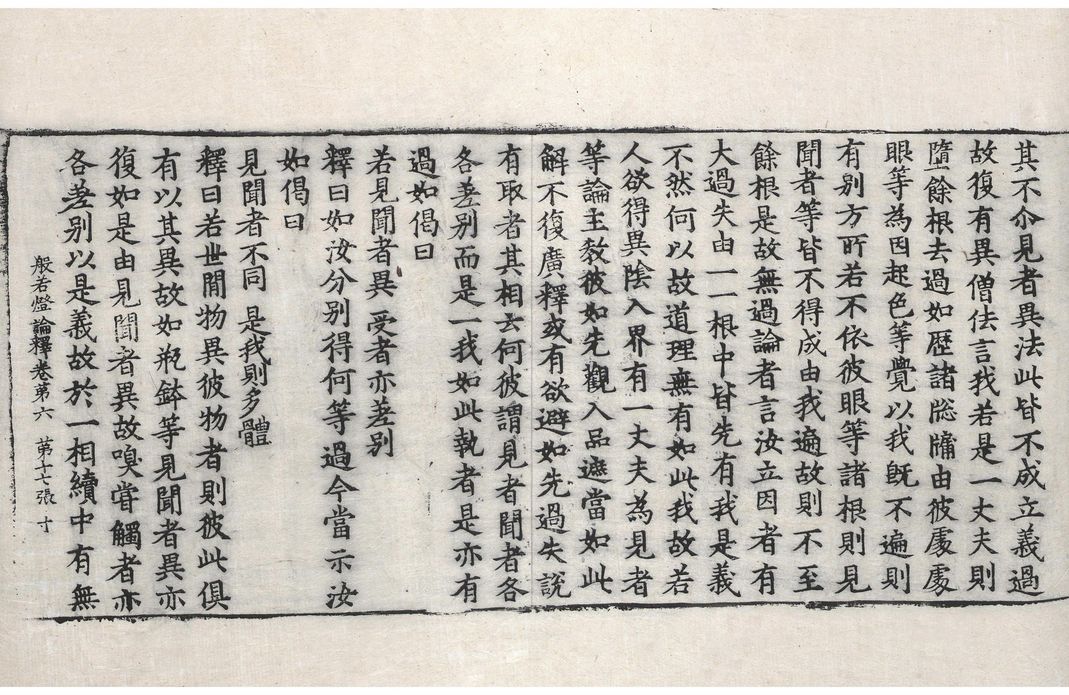 其不尒見者異法此皆不成立義過
故復有異僧佉言我若是一丈夫則
墮餘根去過如歷諸牕牖由彼處處
眼等為因起色等覺以我旣不遍則
有別方所若不依彼眼等諸根則見
聞者等皆不得成由我遍故則不至
餘根是故無過論者言汝立因者有
大過失由一一根中皆先有我是義
不然何以故道理無有如此我故若
人欲得異陰入界有一丈夫為見者
等論主敎彼如先觀入品遮當如此
解不復廣釋或有欲避如先過失說
有取者其相云何彼謂見者聞者各
各差別而是一我如此執者是亦有
過如偈曰
若見聞者異 受者亦差別
釋曰如汝分別得何等過今當示汝
如偈曰
見聞者不同 是我則多體
釋曰若世間物異彼物者則彼此俱
有以其異故如甁鉢等見聞者異亦
復如是由見聞者異故嗅嘗觸者亦
各差別以是義故於一相續中有無
般若燈論釋卷第六 第十七張 寸